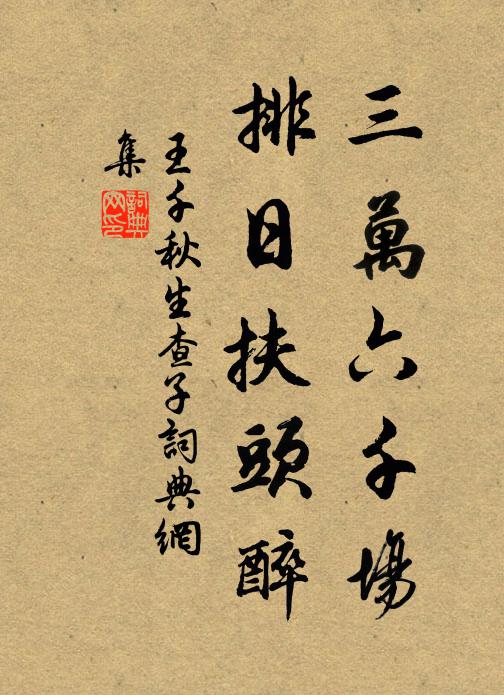 三萬六千場
排日扶頭醉
王千秋生查子詞典網
集
詞典
网印